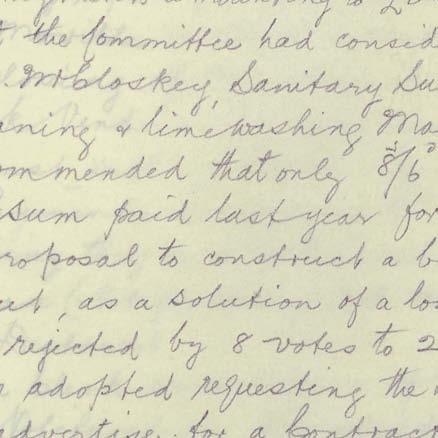 the Committee had consid
McCloskey, Sanitary Su
aning & limewashing Ma
ommended that only 8/6
sum paid last year for
roposal to construct a b
ut, as a solution of a los
rejected by 8 votes to 2
adopted requesting the
advertise for a Contract